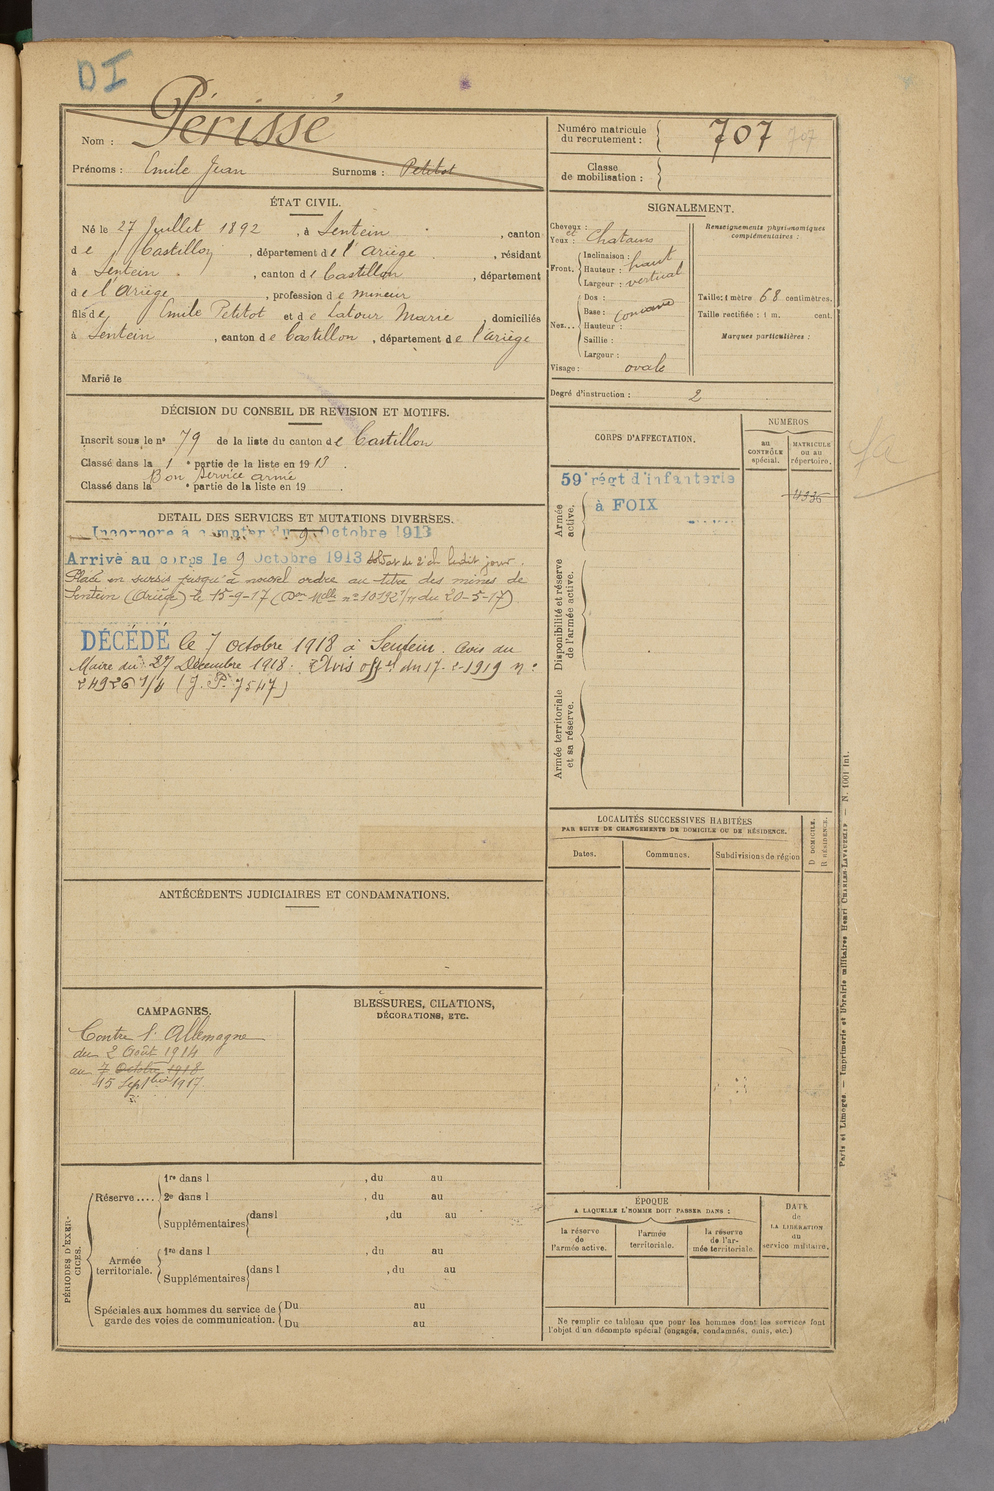 DI
Nom : Périssé
Prénoms : Emile Jean Surnoms : Petitot
ÉTAT CIVIL.
Né le 27 Juillet 1892, à Sentein, canton
de Castillon, département de l'Ariège, résidant
à Sentein, canton de Castillon, département
de l'Ariège, profession de mineur
fils de Emile Petitot et de Latour Marie, domiciliés
à Sentein, canton de Castillon, département de l'Ariège
Marié le
DÉCISION DU CONSEIL DE REVISION ET MOTIFS.
Inscrit sous le nº 79 de la liste du canton de Castillon
Classé dans la 1 e partie de la liste en 1913.
Bon service armé
Classé dans la e partie de la liste en 19 .
DETAIL DES SERVICES ET MUTATIONS DIVERSES.
Incorporé à compter du 9 Octobre 1913
Arrivé au corps le 9 Octobre 1913 soldat de 2e cl. ledit jour.
Placé en sursis jusqu'à nouvel ordre au titre des mines de
Sentein (Ariège) le 15-9-17 (Don Melle nº 10192 1/7 du 20-5-17)
DÉCÉDÉ le 7 octobre 1918 à Sentein. Avis du
Maire du 27 Décembre 1918. Avis offel du 17-2-1919 nº
24926 1/4 (J.P. 7547)
ANTÉCÉDENTS JUDICIAIRES ET CONDAMNATIONS.
CAMPAGNES.
Contre l'Allemagne
du 2 Août 1914
au 7 Octobre 1918
15 Septbre 1917
BLESSURES, CILATIONS,
DÉCORATIONS, ETC.
PÉRIODES D'EXERCICES.
Réserve .... 1re dans l , du au
2e dans l , du au
Supplémentaires dans l , du au
Armée territoriale. 1re dans l , du au
Supplémentaires dans l , du au
Spéciales aux hommes du service de garde des voies de communication. Du au
Du au
Numéro matricule du recrutement : 707 707
Classe de mobilisation :
SIGNALEMENT.
Cheveux :
et Chatains
Yeux :
Front. Inclinaison :
Hauteur : haut
Largeur : vertical
Nez... Dos :
Base : concave
Hauteur :
Saillie :
Largeur :
Visage : ovale
Renseignements physionomiques complémentaires :
Taille : 1 mètre 68 centimètres.
Taille rectifiée : 1 m. cent.
Marques particulières :
Degré d'instruction : 2
CORPS D'AFFECTATION.
NUMÉROS
au CONTRÔLE spécial.
MATRICULE ou au répertoire.
59e régt d'infanterie
à FOIX
Armée active.
Disponibilité et réserve de l'armée active.
Armée territoriale et sa réserve.
LOCALITÉS SUCCESSIVES HABITÉES
PAR SUITE DE CHANGEMENTS DE DOMICILE OU DE RÉSIDENCE.
Dates. Communes. Subdivisions de région
D DOMICILE.
R RÉSIDENCE.
ÉPOQUE
A LAQUELLE L'HOMME DOIT PASSER DANS :
la réserve de l'armée active.
l'armée territoriale.
la réserve de l'armée territoriale.
DATE de LA LIBÉRATION du service militaire.
Ne remplir ce tableau que pour les hommes dont les services font
l'objet d'un décompte spécial (engagés, condamnés, omis, etc.)
Paris et Limoges. — Imprimerie et librairie militaires Henri CHARLES-LAVAUZELLE — N. 1001 Int.